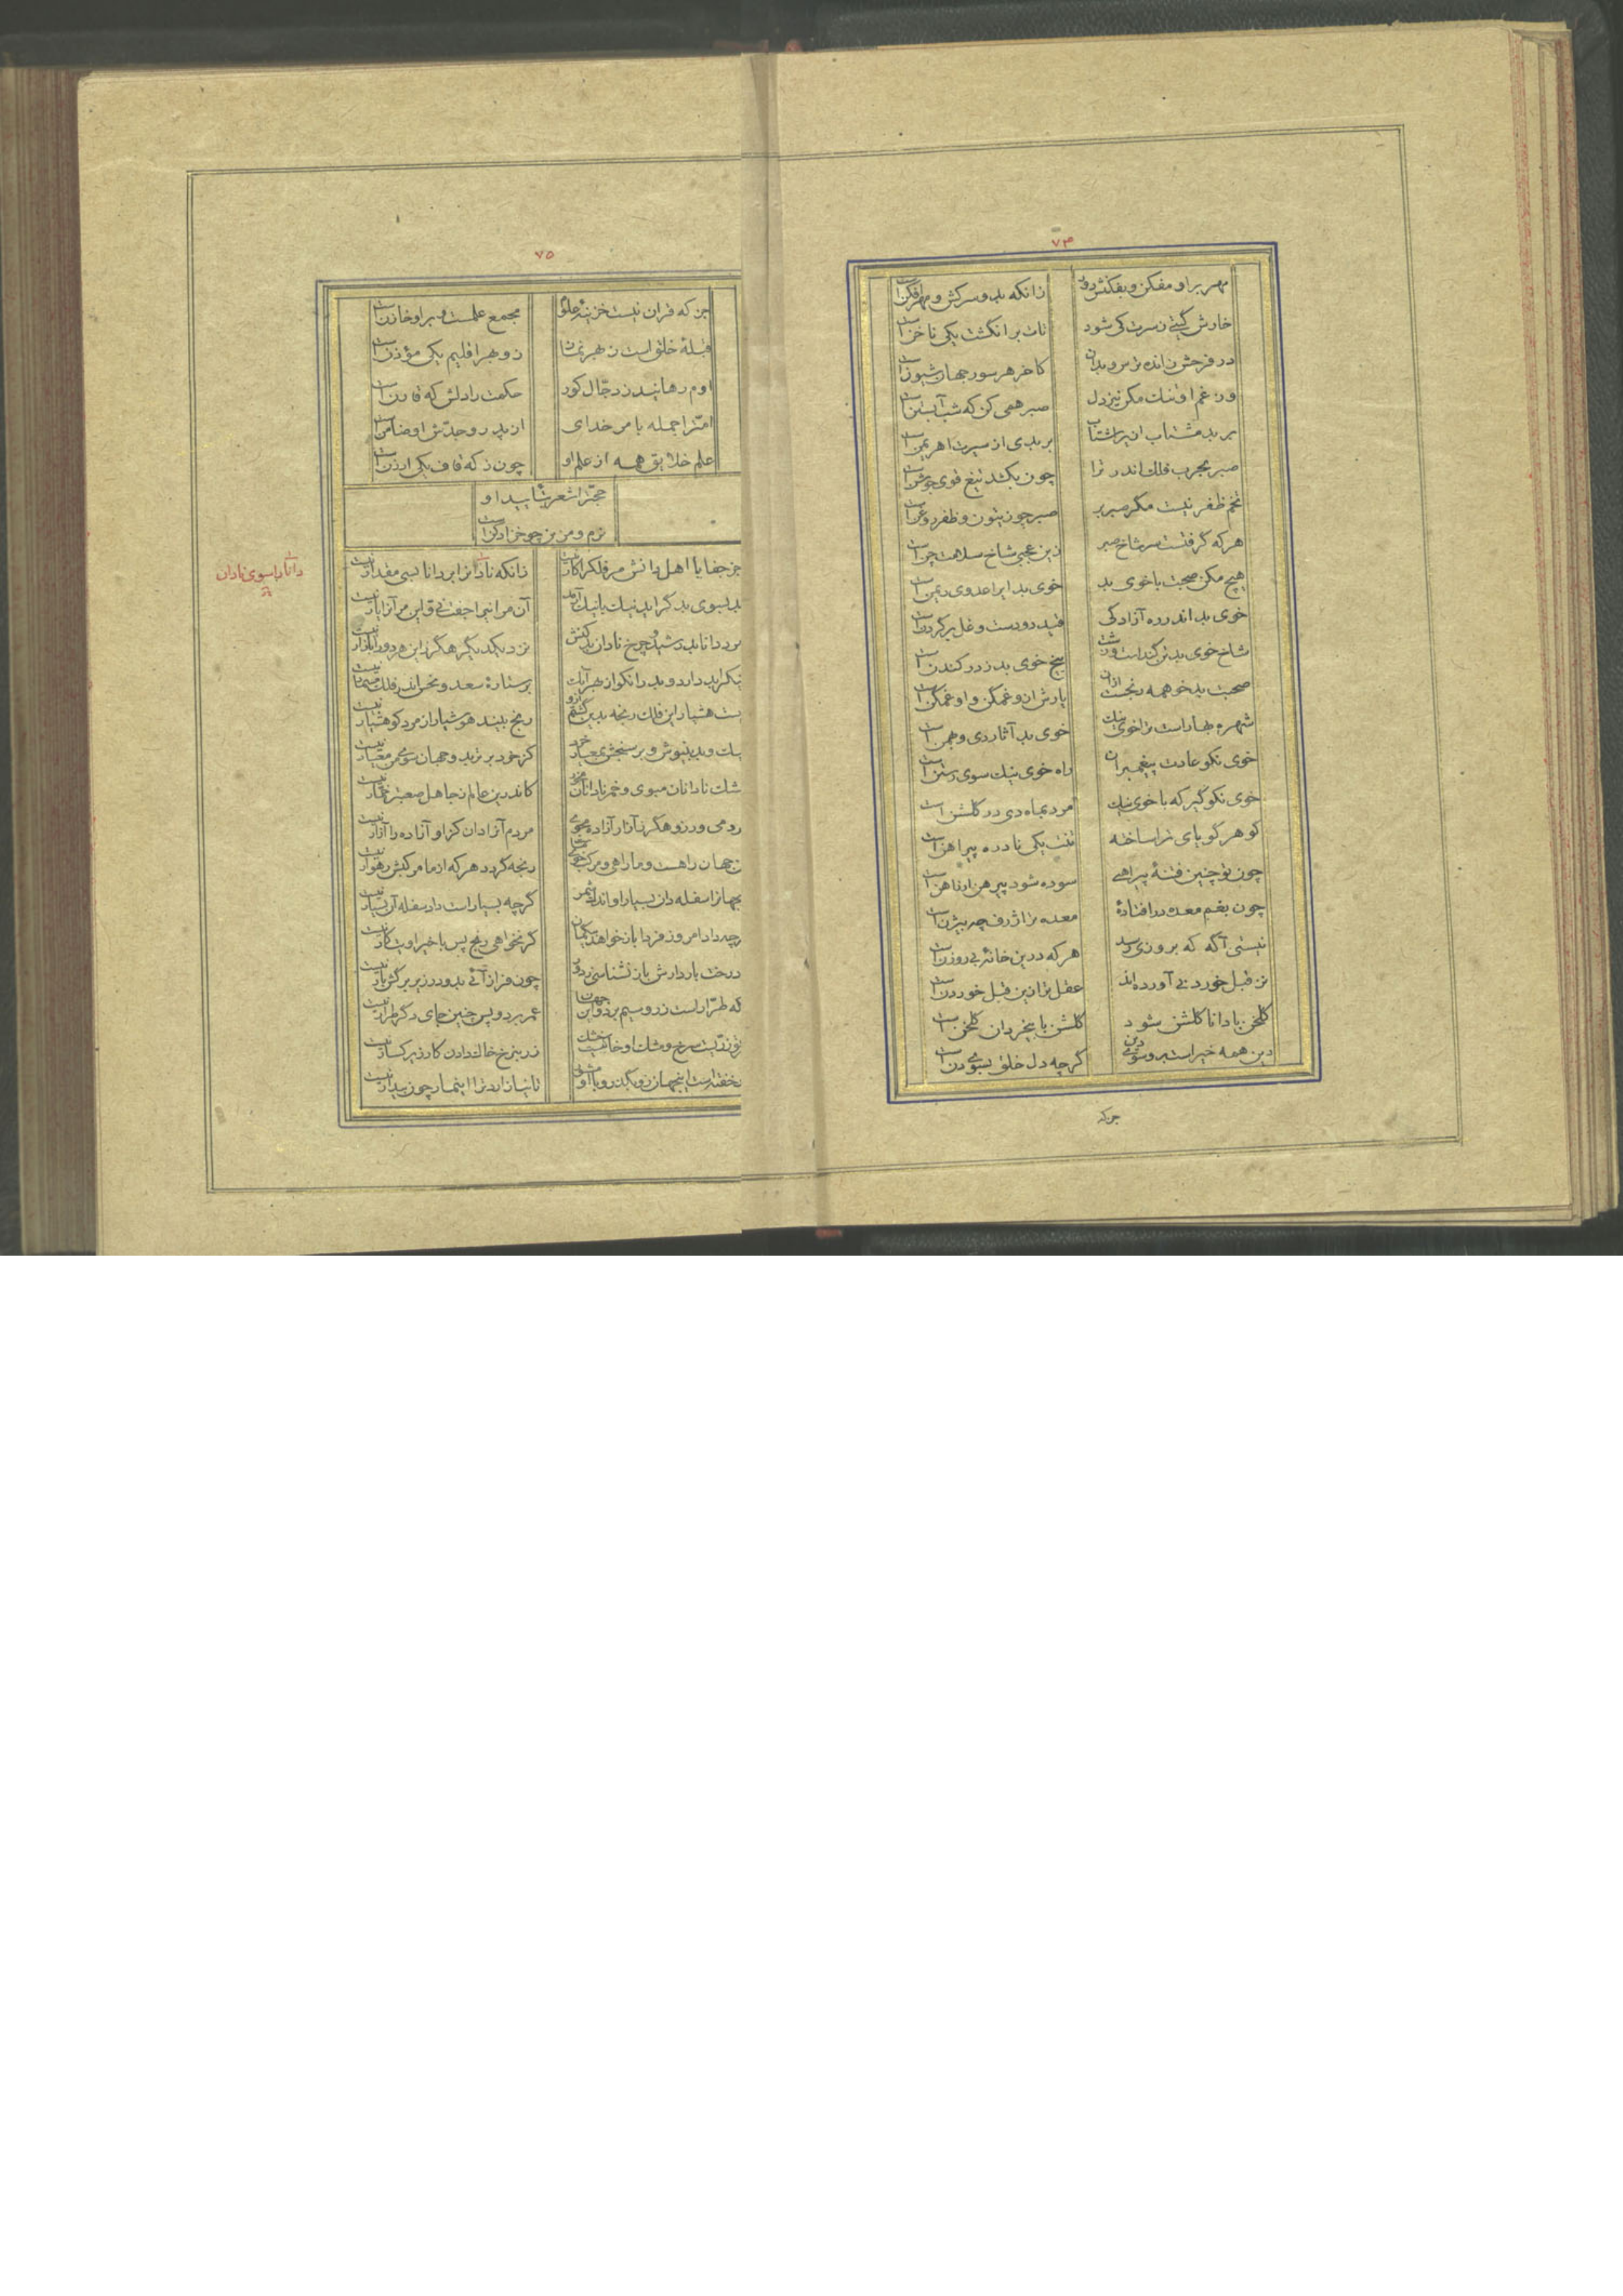 ۷۴
مهر بر او مفکن و بفکنش دور زانکه بد و سرکش و مهر افکن است
خارش گیتی ز سرت کی شود تات بر انگشت یکی ناخن است
در فرحش زانده تر مرو بدان کاخر هر سور جهان شیون است
وز غم او تنگ مکن نیز دل صبر همی کن که شب آبستن است
بر بد مشتاب ازیرا شتاب بر بدی از سیرت اهریمن است
صبر بحرب فلک اندر ترا چون بکشد تیغ قوی جوشن است
تخم ظفر نیست مگر صبر بر صبر چو زیتون و ظفر روغن است
هر که گرفتست سر شاخ صبر زین عجبی شاخ سلامت چن است
هیچ مکن صحبت با خوی بد خوی بد ایرا عدوی ریمن است
خوی بد اندر ره آزادگی قید دو دست و غل بر گردن است
شاخ خوی بد بزن کندنست بیخ خوی بد ز در کندن است
صحبت بد خو همه رنجست ازان یارش ازو غمگن و او غمگن است
شهره بهاراست ترا خوی نیک خوی بد آثار دی و بهمن است
خوی نکو عادت پیغمبران راه خوی نیک سوی رستن است
خوی نکو گیر که با خوی نیک مرد بماه دی در گلشن است
گوهر گویای ترا ساخته تنت یکی نادره پیراهن است
چون تو چنین فتنه پیراهنی سوده شود پیرهن ار آهن است
چون بغم معده در افتاده معده ترا ژرف چه بیژن است
نیستی آگه که بروزی رسد هر که درین خانه بی روزن است
نز قبل خوردنی آورده‌اند عقل ترا زین قبل خوردن است
گلخن با دانا گلشن شود گلشن با بیخردان گلخن است
دین همه خیراست برو سوی دین گر چه دل خلق بسوی دن است
جز که
۷۵
جز که قران نیست خزینه علوم مجمع علمست و بر او خازن است
قبلهٔ خلق است ز هر نماز زو بهر اقلیم یکی مؤذن است
اوم رهانید ز دجال کور حکمت را دلش که قارن است
امت را جمله بامر خدای از پدر و جدش او ضامن است
علم خلایق همه از علم او چون ز که قاف یکی ارزن است
حجت را شعر بتایید او
نرم و مزین چو خز ادکن است
جز جفا با اهل دانش مر فلک را کار نیست زانکه نادانرا بر دانا بسی مقدار نیست
دانا را سوی نادان
بد بسوی بد گراید نیک با نیک آرمد آن مر اینرا جفت نی و این مر آنرا یار نیست
مرد دانا بد رشید و چرخ نادان بد کنش نزد یکدیگر هگرز این هر دو را بازار نیست
نیک را بد دارد و بد را نکو از بهر آنک بر ستارهٔ سعد و نحس اندر فلک مسمار نیست
مست هشیار این فلک رنجه بدین گشتم ازو رنج بیند هوشیار از مرد کو هشیار نیست
نیک و بد بنیوش و بر سنجش بمعیار خرد کز خرد برتر بدو جهان سوی من معیار نیست
مشک نادانان مبوی و خمر نادانان مخور کاندرین عالم ز جاهل صعبتر خمار نیست
مردمی ورز و هگرز آزار آزاده مجوی مردم آنرا دان کزو آزاده را آزار نیست
این جهان راهست و ما راهی و مرکب خوی ما رنجه گردد هر که از ما مرکبش رهوار نیست
این جهانرا سفله دان بسیار او اندک شمر گر چه بسیار است داد سفله آن بسیار نیست
هر چه داد امروز فردا باز خواهد بیگمان گر نخواهی رنج پس با خیر اوت کار نیست
بد درخت باردارش باز نشناسی ز دور چون فراز آئی بدو در زیر برگش بار نیست
گه طرّار است زر و سیم برد و این جهان عمر برد و پس چنین جای دگر طرار نیست
چون زریست سرخ و مشک او خاکیست خشک زر بنرخ خاک دادن کار زیرکسار نیست
تا نخفته است اینجهان زو بگذر و با او مشو تا نیازارد ترا اینمار چون بیدار نیست